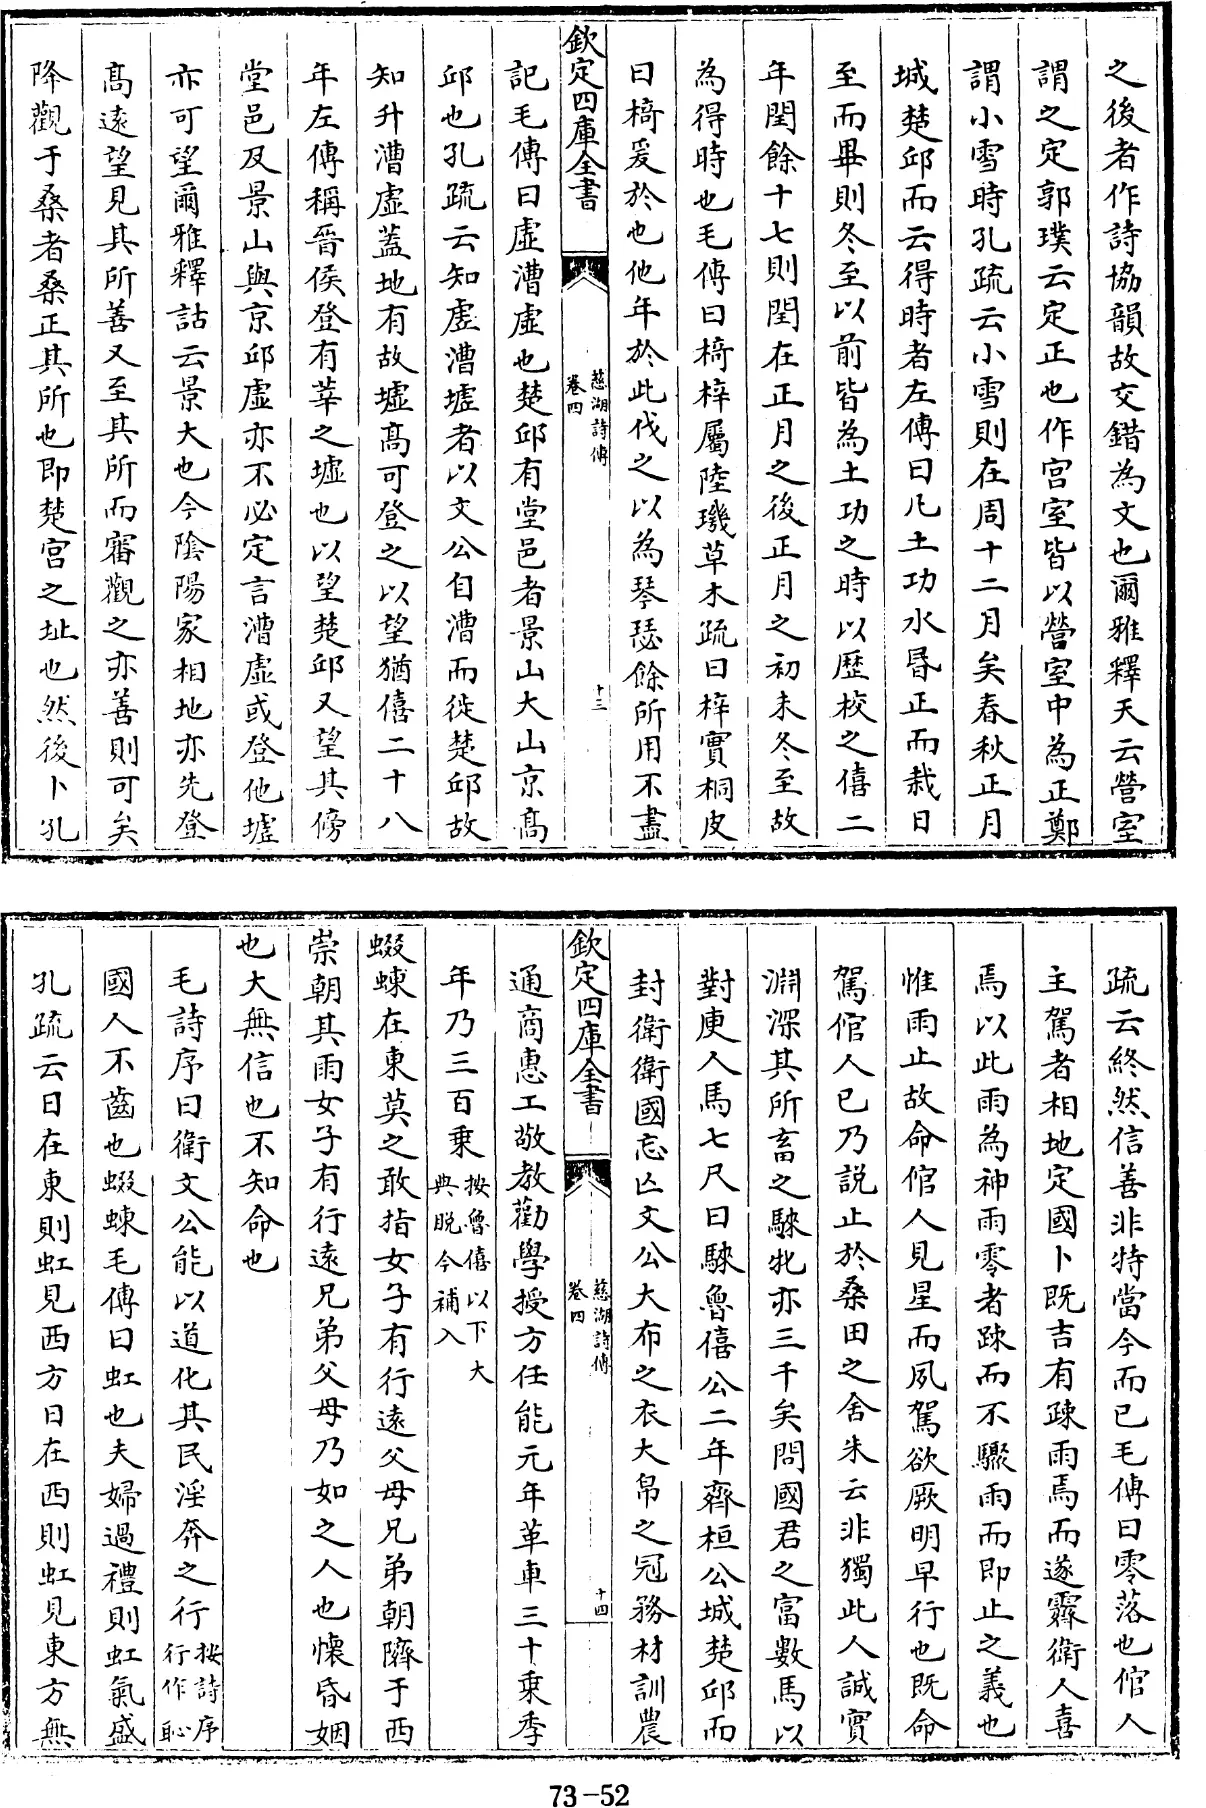 之後者作詩協韻故交錯為文也爾雅釋天云營室
謂之定郭璞云定正也作宫室皆以營室中為正鄭
謂小雪時孔疏云小雪則在周十二月矣春秋正月
城楚邱而云得時者左傳曰凡土功水昏正而栽日
至而畢則冬至以前皆為土功之時以歷校之僖二
年閏餘十七則閏在正月之後正月之初未冬至故
為得時也毛傳曰椅梓屬陸璣草木疏曰梓實桐皮
曰椅爰於也他年於此伐之以為琴瑟餘所用不盡
欽定四庫全書
慈湖詩傳
卷四
十三
記毛傳曰虛漕虛也楚邱有堂邑者景山大山京髙
邱也孔疏云知虛漕墟者以文公自漕而徙楚邱故
知升漕虛蓋地有故墟髙可登之以望猶僖二十八
年左傳稱晉侯登有莘之墟也以望楚邱又望其傍
堂邑及景山與京邱虛亦不必定言漕虛或登他墟
亦可望爾雅釋詁云景大也今陰陽家相地亦先登
髙遠望見其所善又至其所而審觀之亦善則可矣
降觀于桑者桑正其所也即楚宫之址也然後卜孔
疏云終然信善非特當今而已毛傳曰零落也倌人
主駕者相地定國卜既吉有疎雨焉而遂霽衛人喜
焉以此雨為神雨零者疎而不驟雨而即止之義也
惟雨止故命倌人見星而夙駕欲厥明早行也既命
駕倌人已乃説止於桑田之舍朱云非獨此人誠實
淵深其所畜之騋牝亦三千矣問國君之富數馬以
對庾人馬七尺曰騋魯僖公二年齊桓公城楚邱而
封衛衛國忘亡文公大布之衣大帛之冠務材訓農
欽定四庫全書
慈湖詩傳
卷四
十四
通商惠工敬教勸學授方任能元年革車三十乘季
年乃三百乘按魯僖以下大典脱今補入
蝃蝀在東莫之敢指女子有行遠父母兄弟朝隮于西
崇朝其雨女子有行遠兄弟父母乃如之人也懷昏姻
也大無信也不知命也
毛詩序曰衛文公能以道化其民淫奔之行按詩序行作恥
國人不齒也蝃蝀毛傳曰虹也夫婦過禮則虹氣盛
孔疏云日在東則虹見西方日在西則虹見東方無
73-52